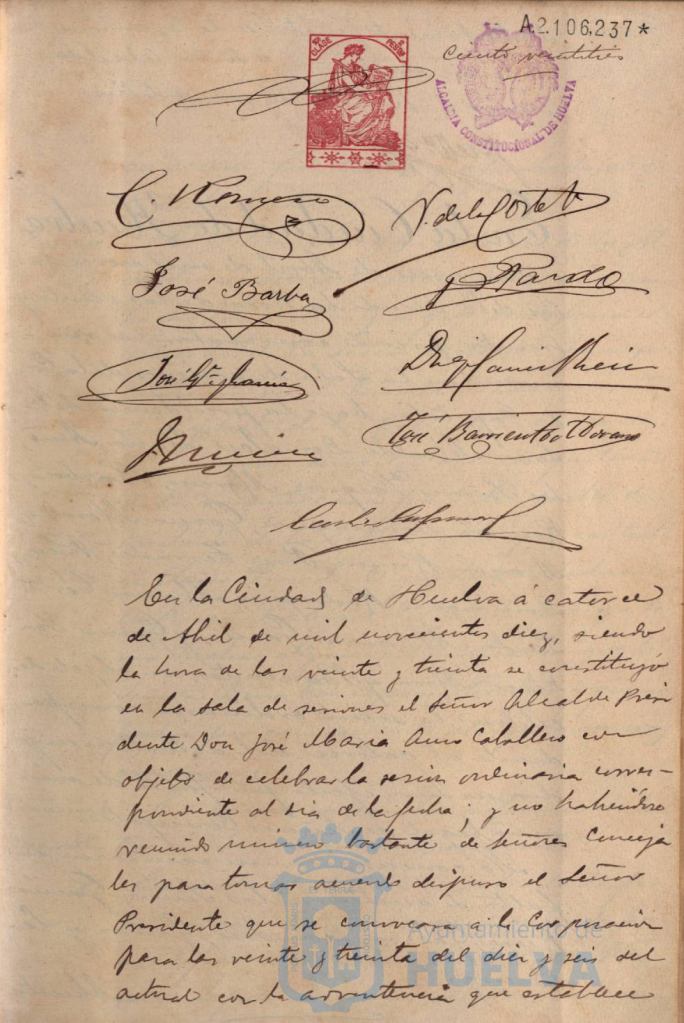 A2.106.237*
Ciento veintitrés
CLASE PESETA
ALCALDIA CONSTITUCIONAL DE HUELVA
C. Romero
V. de la Corte
José Barba
Pardo
José Mª
José Barrientos
En la Ciudad de Huelva á catorce
de Abril de mil novecientos diez, siendo
la hora de las veinte y treinta se constituyó
en la sala de sesiones el Señor Alcalde Presi
dente Don José Maria Amo Caballero con
objeto de celebrar la sesion ordinaria corres-
pondiente al dia de la fecha; y no habiéndose
reunido número bastante de Señores Conceja
les para tomar acuerdo dispuso el Señor
Presidente que se convocara a la Corporacion
para las veinte y treinta del diez y seis del
actual con la advertencia que establece
Ayuntamiento de
HUELVA